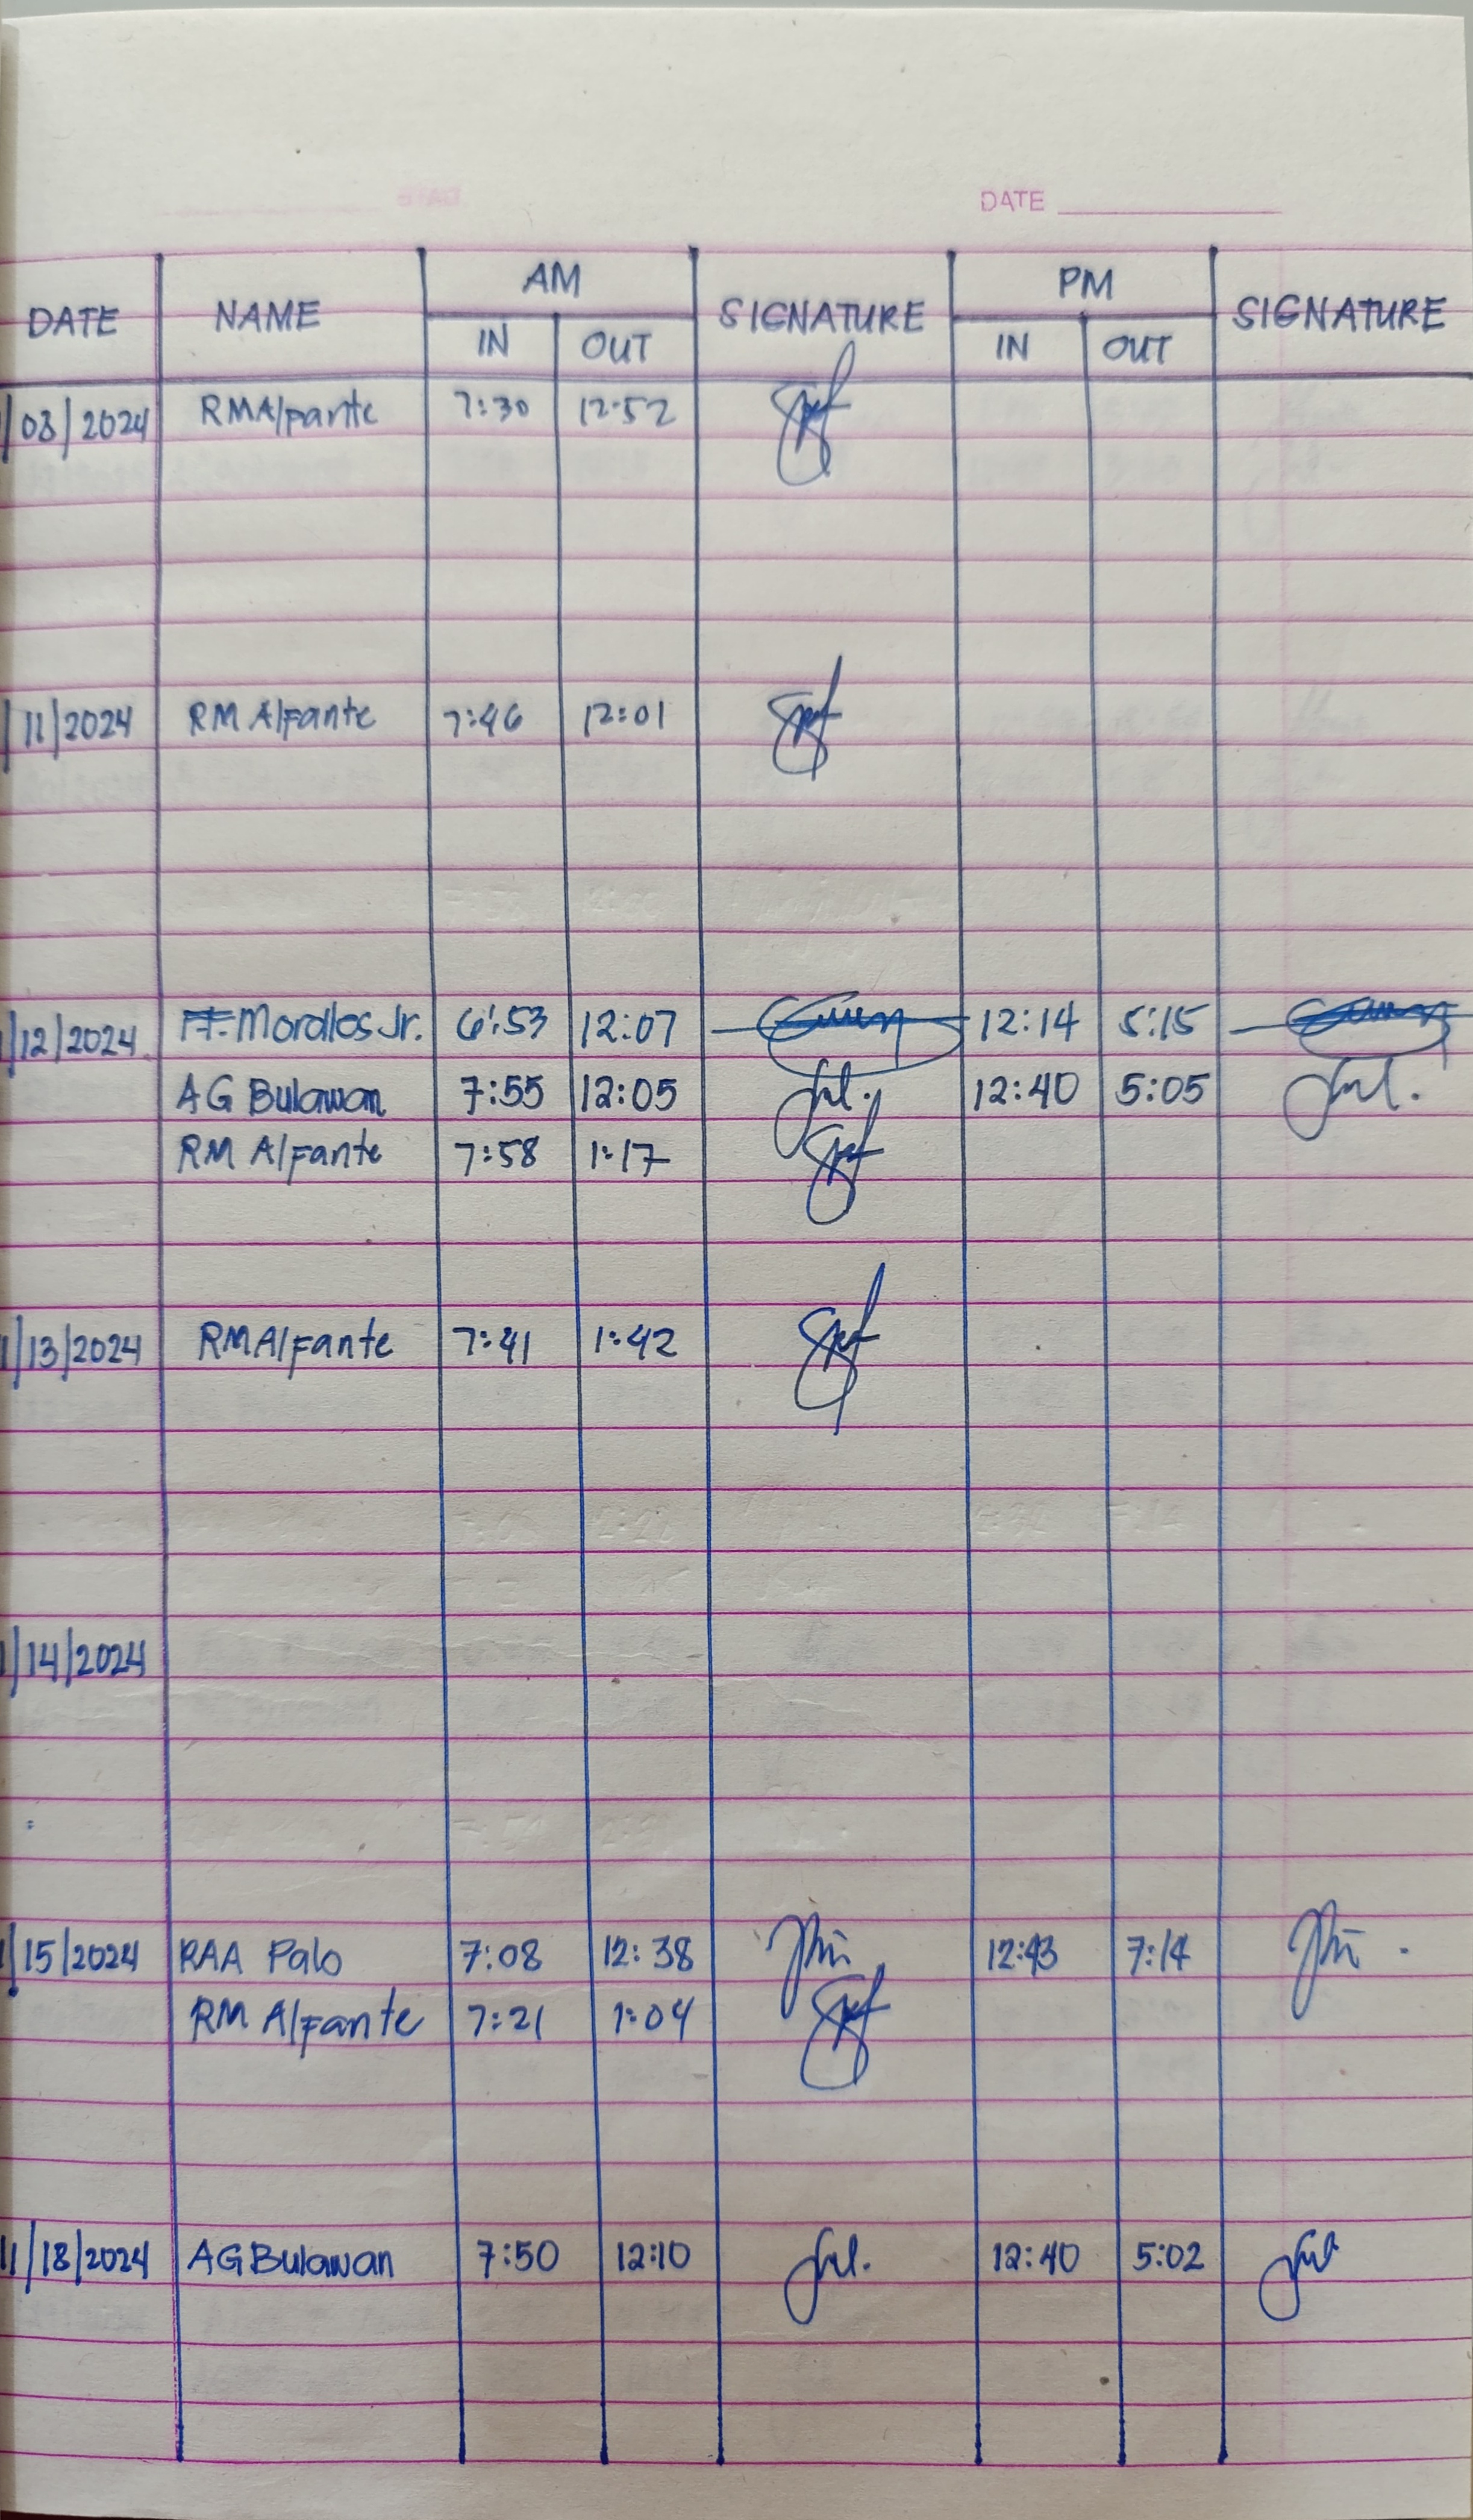 DATE
DATE NAME AM SIGNATURE PM SIGNATURE
IN OUT IN OUT
/08/2024 RMAlfante 7:30 12:52
/11/2024 RM Alfante 7:46 12:01
/12/2024 FF. Morallos Jr. 6:53 12:07 12:14 5:15
AG Bulawan 7:55 12:05 12:40 5:05
RM Alfante 7:58 1:17
/13/2024 RMAlfante 7:41 1:42
/14/2024
/15/2024 RAA Palo 7:08 12:38 12:43 7:14
RM Alfante 7:21 1:04
11/18/2024 AGBulawan 7:50 12:10 12:40 5:02